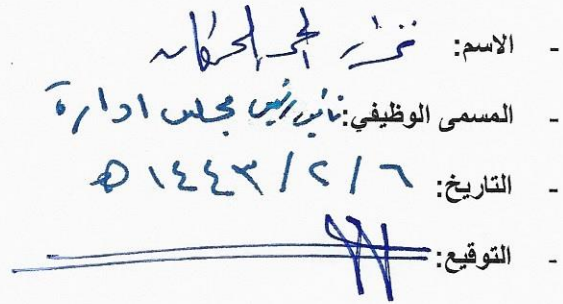 - الاسم:
- المسمى الوظيفي: نائب رئيس مجلس ادارة
- التاريخ: ٦ / ٢ / ١٤٤٣ ه
- التوقيع: